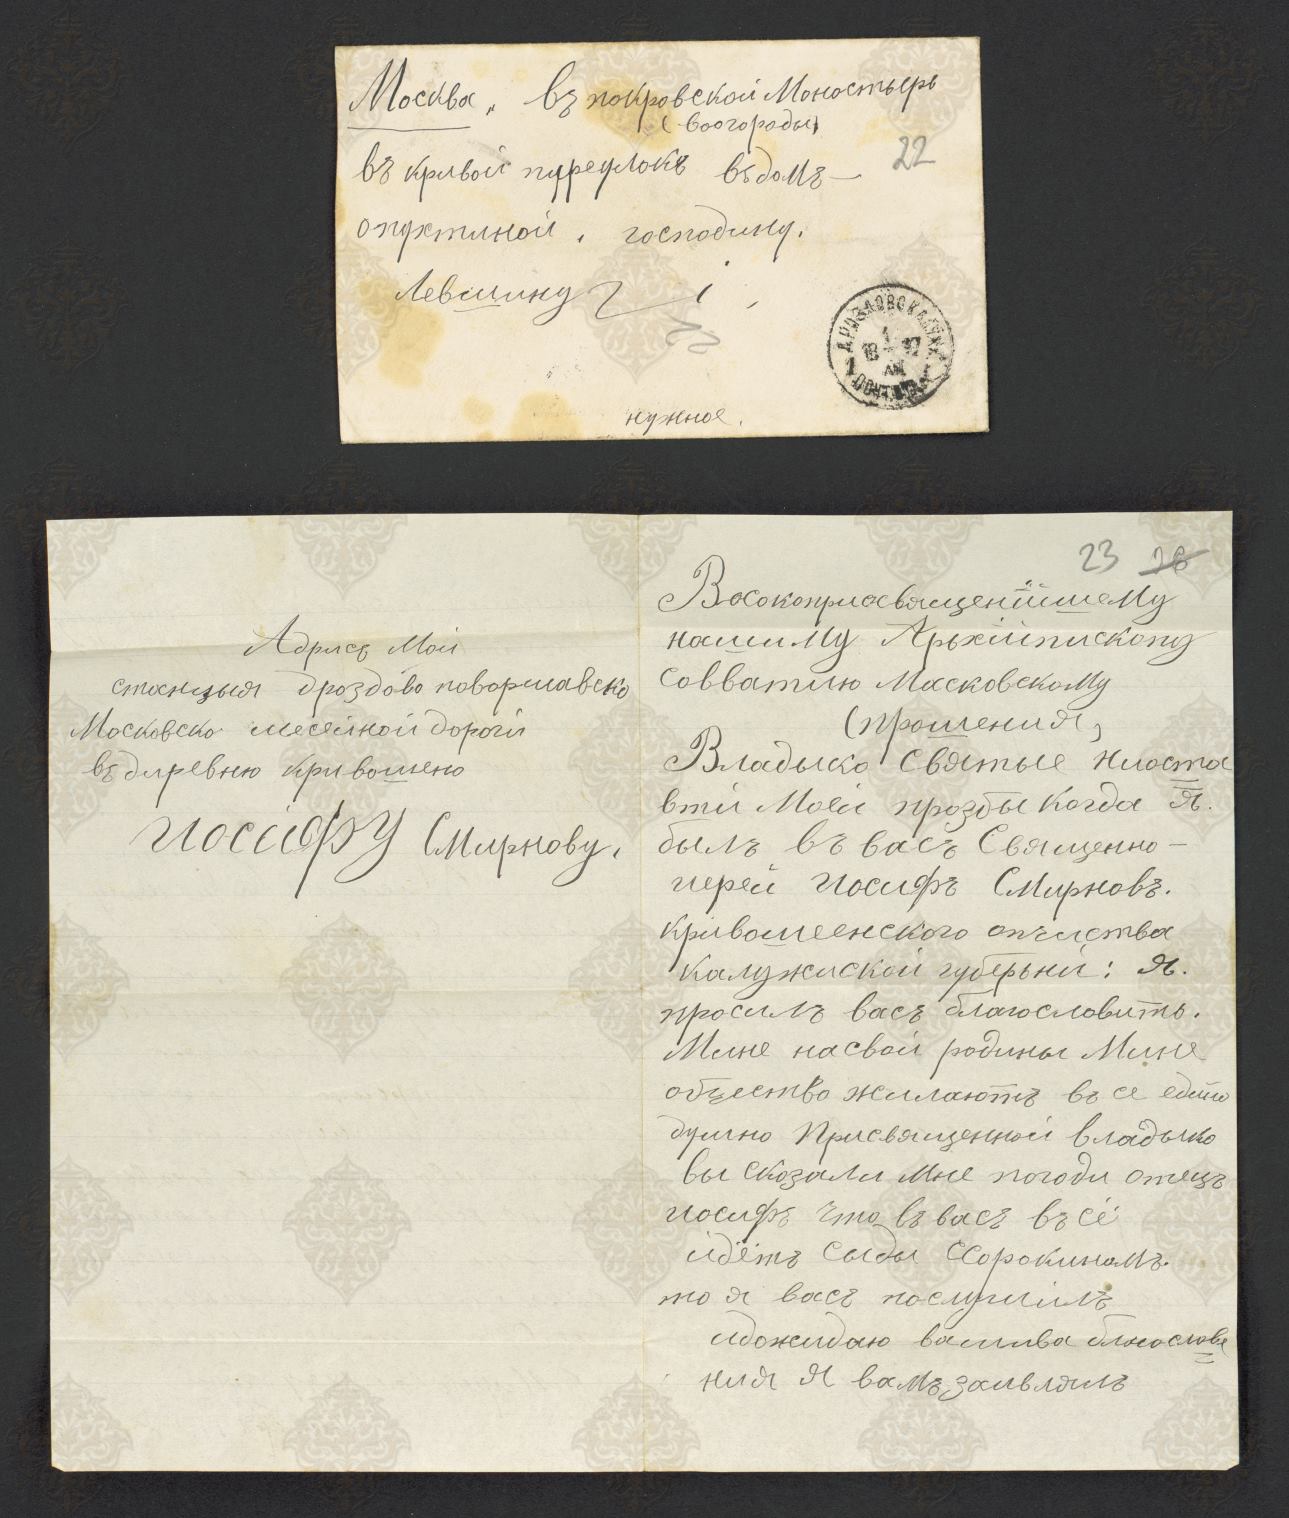 Москва, въ покровской Моностырь
(вогороды)
22
въ кривой пуреулокъ въ домъ —
опухтиной, господину.
Левшину
нужное.
23 26
Адрисъ Мой
станцыя дроздово
Московско
въ диревню кривошено
иосифу Смирнову.
Васокоприасвященїйшему
нашиму Арьхiйпископу
Савватию Масковскому
(прошения)
Владыко Святые ниоста
вти Моей прозбы когда я.
былъ въ васъ Священно-
иерей иосифъ Смирновъ.
кривошеенского
калужиской губерьнiи: я.
просилъ васъ благословить.
Мине насвой родины Мине
общество жилаютъ въсе едино
душно Присвященной владыко
вы сказали мне погоди отецъ
иосифъ что въ васъ въсё
идётъ Сыды Сорокинамъ.
то я васъ послушилъ
идожидаю вашива блаослове
ния я вамъ заивлялъ